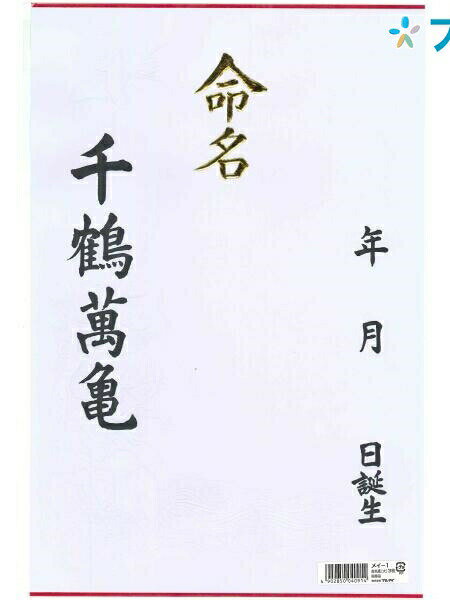 年 月 日誕生
命名
千鶴萬亀
メイ-1
4 902850 040914